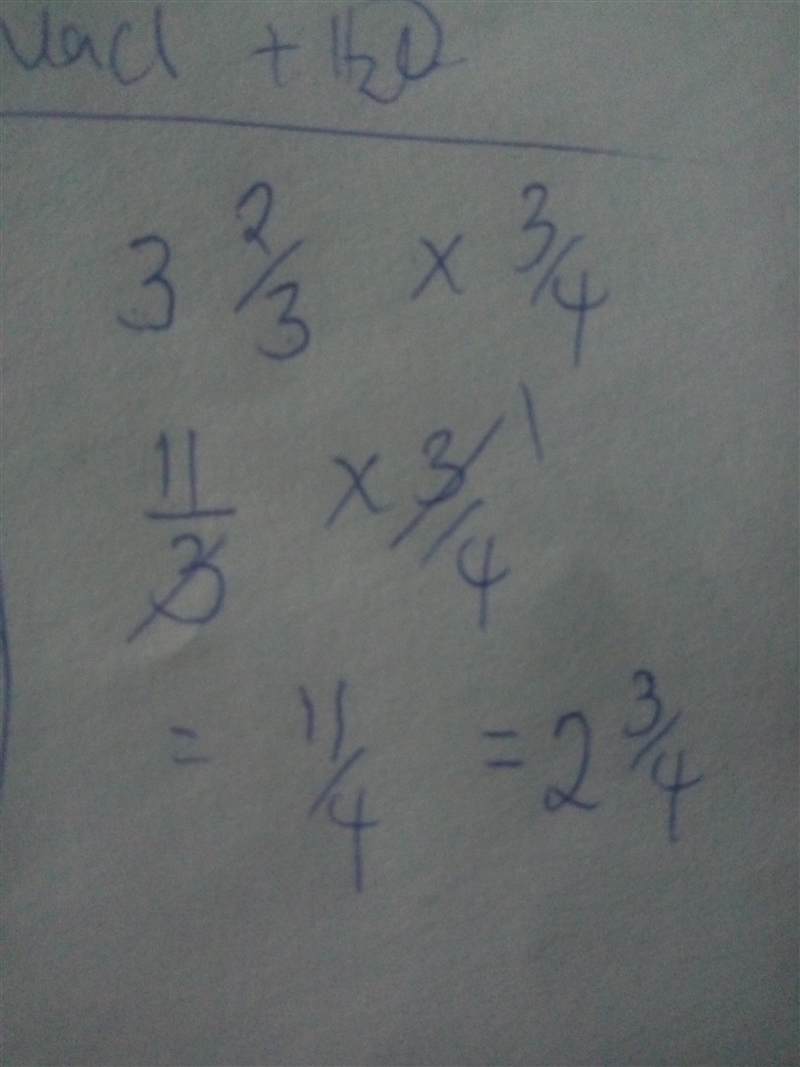 NaCl + H2O
3 2/3 × 3/4
11/3 × 3/4 1
= 11/4 = 2 3/4